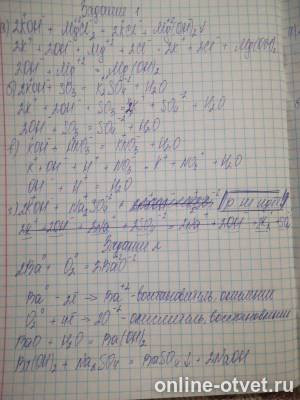 Задание 1
а) 2KOH + MgCl₂ = 2KCl + Mg(OH)₂↓
2K⁺ + 2OH⁻ + Mg⁺² + 2Cl⁻ = 2K⁺ + 2Cl⁻ + Mg(OH)₂
2OH⁻ + Mg⁺² = Mg(OH)₂
б) 2KOH + SO₃ = K₂SO₄ + H₂O
2K⁺ + 2OH⁻ + SO₃ = 2K⁺ + SO₄⁻² + H₂O
2OH⁻ + SO₃ = SO₄⁻² + H₂O
в) KOH + HNO₃ = KNO₃ + H₂O
K⁺ + OH⁻ + H⁺ + NO₃⁻ = K⁺ + NO₃⁻ + H₂O
OH⁻ + H⁺ = H₂O
г) 2KOH + Na₂SO₄ = р не идет
Задание 2
2Ba⁰ + O₂⁰ = 2BaO⁻²
Ba⁰ - 2e → Ba⁺² - восстановитель, окисление
O₂⁰ + 4e → 2O⁻² - окислитель, восстановление
BaO + H₂O = Ba(OH)₂
Ba(OH)₂ + Na₂SO₄ = BaSO₄↓ + 2NaOH
online-otvet.ru